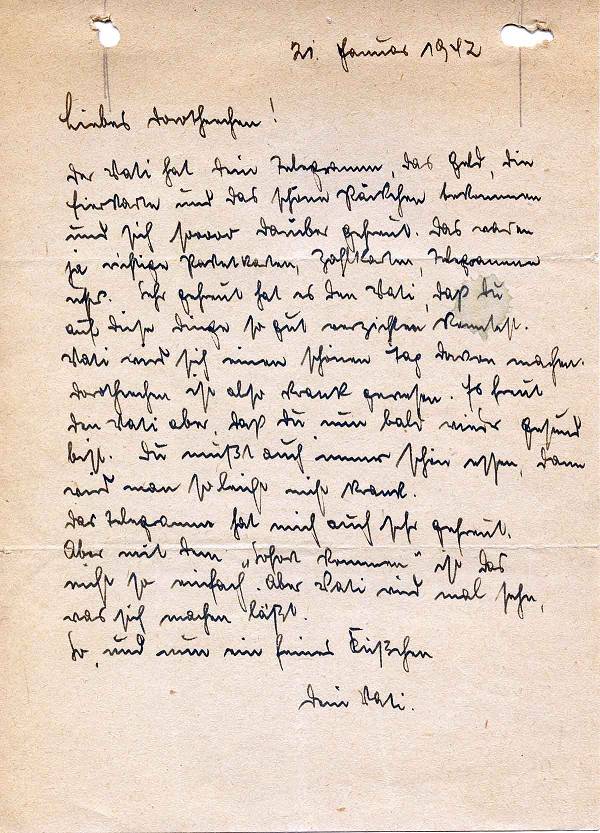 21. Januar 1942
Liebes Dorothechen!
Der Vati hat Dein Telegramm, das Geld, die
Eierkarte und das schöne Päckchen bekommen
und sich soooo darüber gefreut. Das waren
ja richtige Paketkarten, Zahlkarten, Telegramme
usw. Sehr gefreut hat es den Vati, daß Du
auf diese Dinge so gut verzichten konntest.
Vati wird sich einen schönen Tag davon machen.
Dorothechen ist also krank gewesen. Es freut
den Vati aber, daß Du nun bald wieder gesund
bist. Du mußt auch immer schön essen, dann
wird man so leicht nicht krank.
Das Telegramm hat mich auch sehr gefreut.
Aber mit dem „Sofort kommen" ist das
nicht so einfach. Aber Vati wird mal sehn,
was sich machen läßt.
So, und nun ein feines Küßchen
Dein Vati.